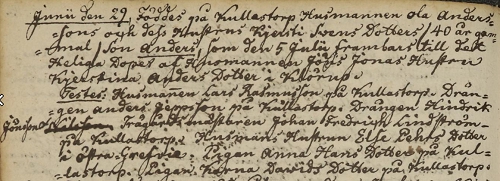 Junii den 29 Föddes på Kullastorp Husmannen Ola Anders-
-sons och dess Hustrus Kjersti Svens Dotters / 40 år gam-
-mal / Son Anders, som den 5 Julii frambars till det
Heliga Dopet af Husmannen Jöns Jonas Hustru
Kjerstina Anders Dotter i
Testes: Husmannen Lars Rasmusson på Kullastorp. Drän-
-gen Anders Jeppsson på Kullastorp. Drängen Hindrik
Jönsson Trägårdsmästaren Johan Fredrich Lindström
på Kullastorp. Husmans Hustrun Else Pehrs Dotter
i Östra Grefvie. Pigan Anna Hans Dotter på Kul-
-lastorp. Pigan Karna Dawids Dotter på Kullastorp.